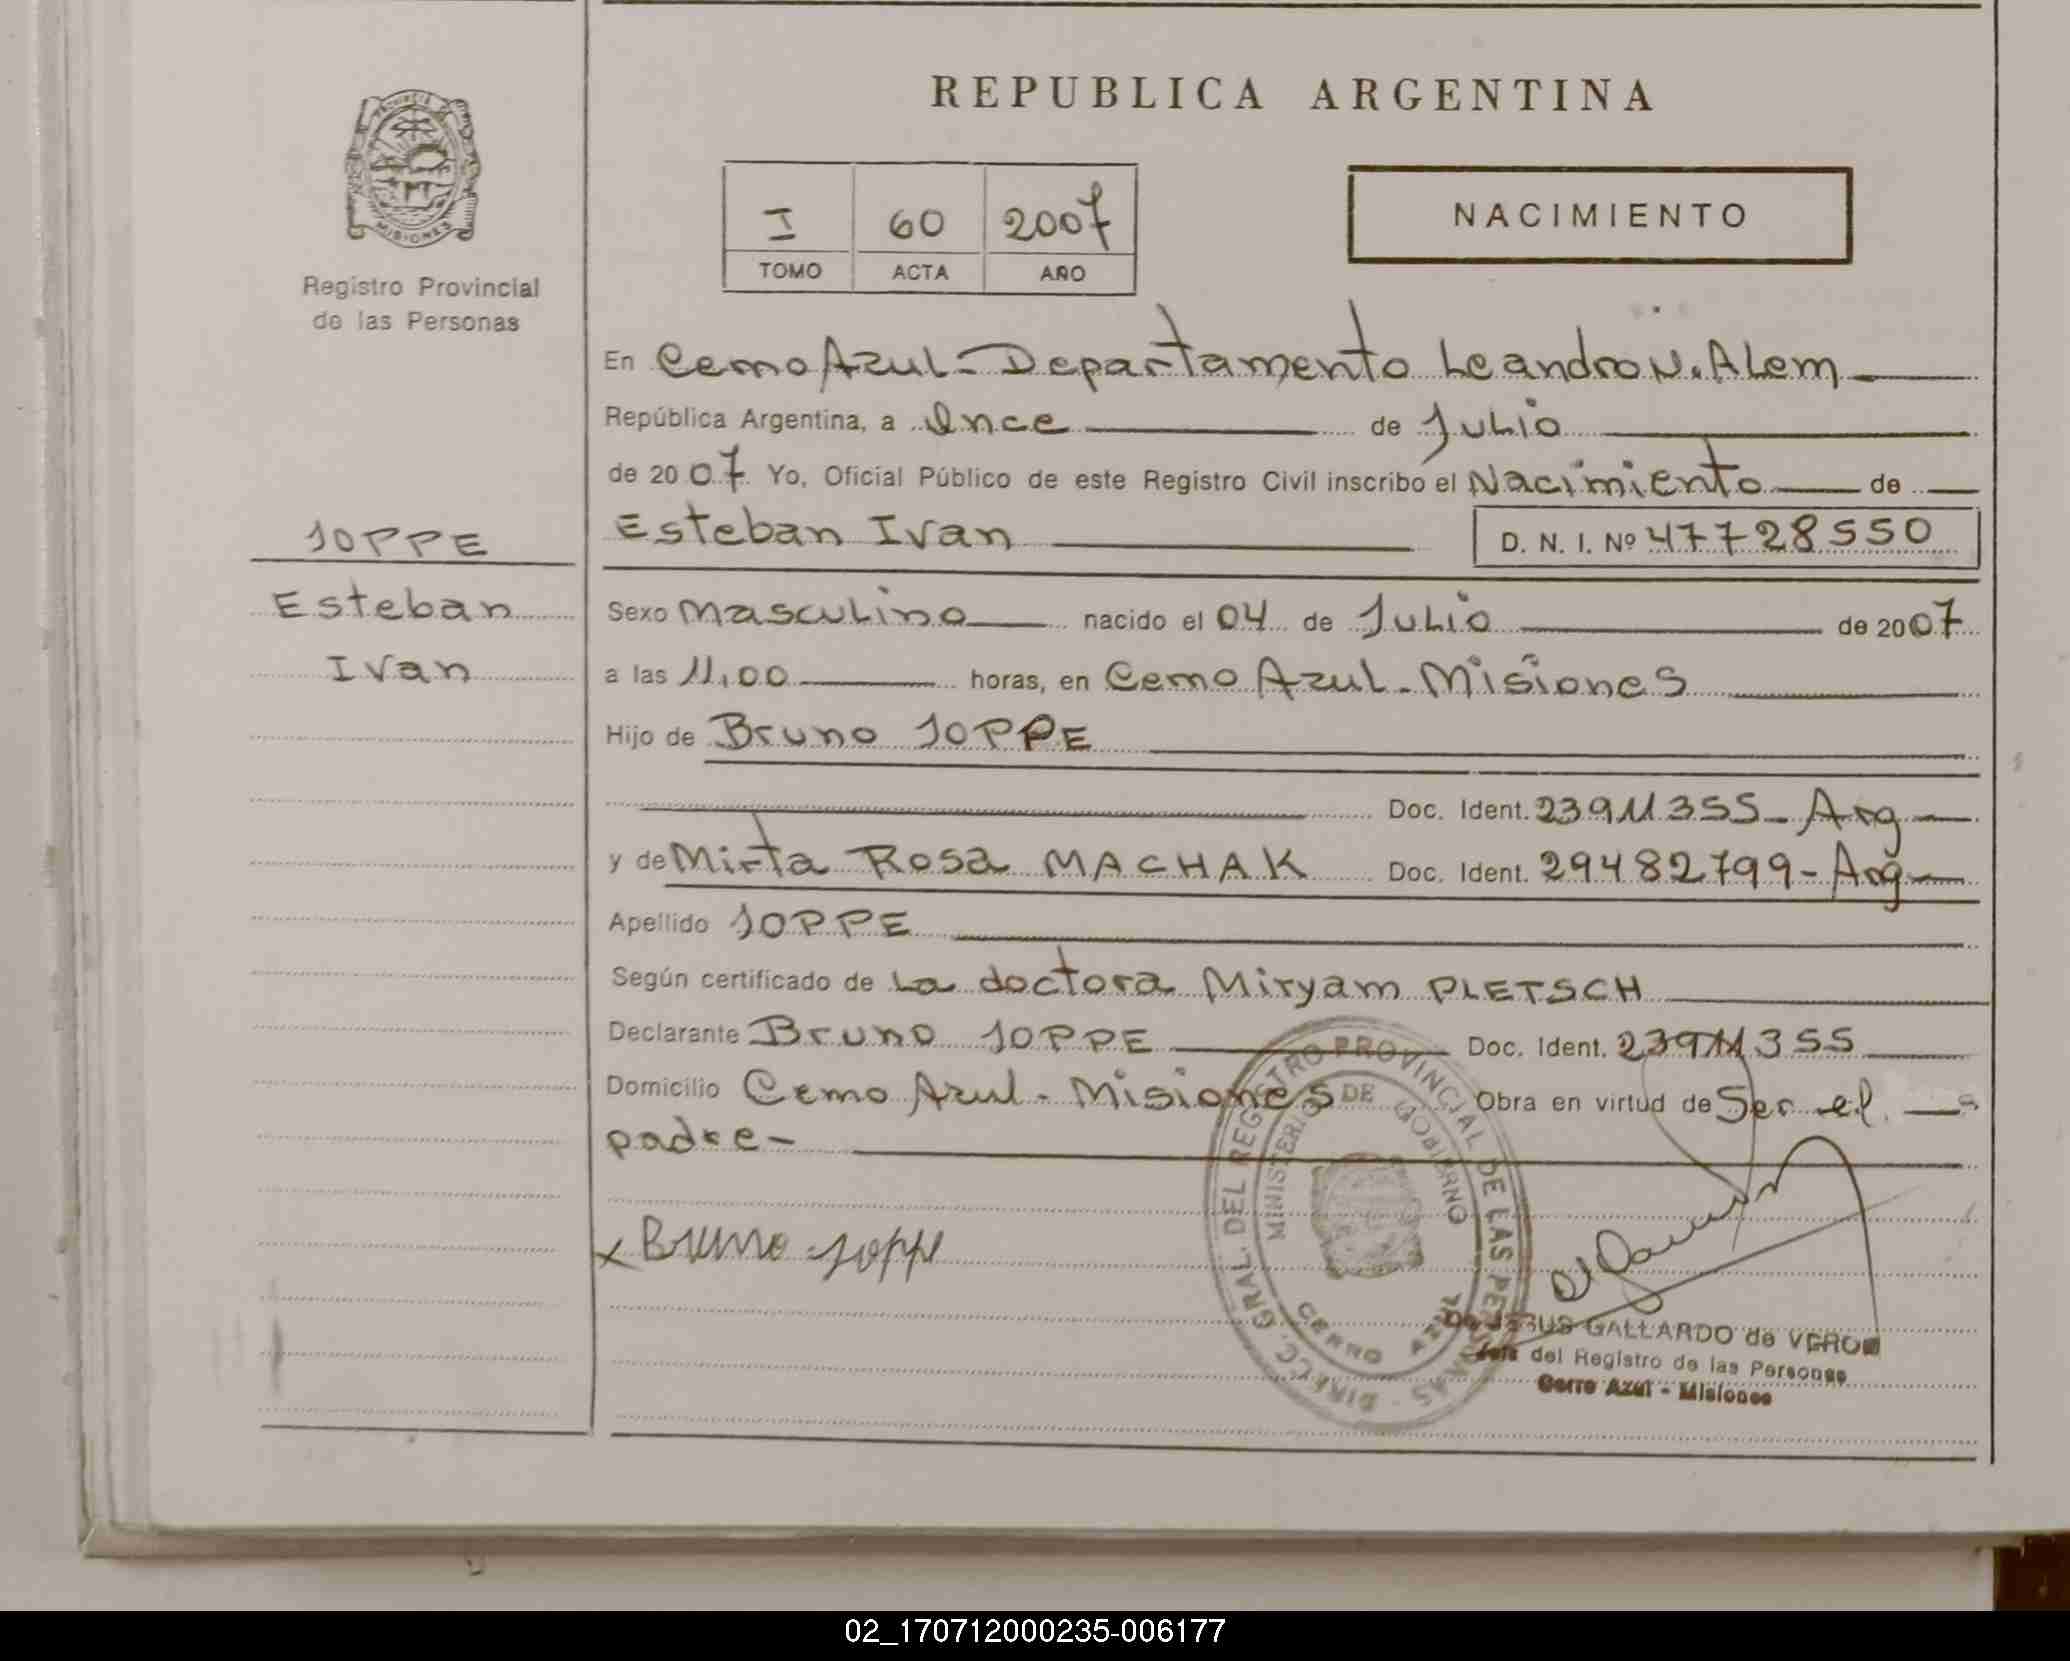 REPUBLICA ARGENTINA
PROVINCIA DE MISIONES
Registro Provincial
de las Personas
I 60 2007
TOMO ACTA AÑO
NACIMIENTO
En Cerro Azul - Departamento Leandro N. Alem
República Argentina, a Once de Julio
de 2007 Yo, Oficial Público de este Registro Civil inscribo el Nacimiento de
JOPPE
Esteban
Ivan
Esteban Ivan D. N. I. Nº 47728550
Sexo Masculino nacido el 04 de Julio de 2007
a las 11,00 horas, en Cerro Azul - Misiones
Hijo de Bruno JOPPE
Doc. Ident. 23911355 - Arg
y de Mirta Rosa MACHAK Doc. Ident. 29482799 - Arg
Apellido JOPPE
Según certificado de La doctora Miryam PLETSCH
Declarante Bruno JOPPE Doc. Ident. 23911355
Domicilio Cerro Azul - Misiones Obra en virtud de Ser el
padre -
x Bruno Joppe
DIRECC. GRAL. DEL REGISTRO PROVINCIAL DE LAS PERSONAS
MINISTERIO DE GOBIERNO
CERRO AZUL
JESUS GALLARDO de VERON
Jefa del Registro de las Personas
Cerro Azul - Misiones
02_170712000235-006177